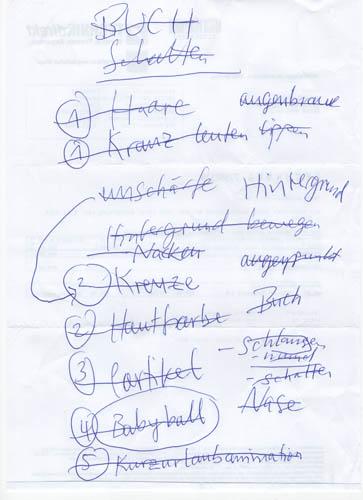 BUCH
Schatten
1 Haare augenbraue
1 Kranz leuten lippen
unschärfe Hintergrund
Hintergrund bewegen
Nacken augenpunkt
2 Kreuze
2 Hautfarbe Buch
3 Partikel - Schlangen
- mund
- schatten
4 Babyball Nase
5 Kurzurlaubanimation